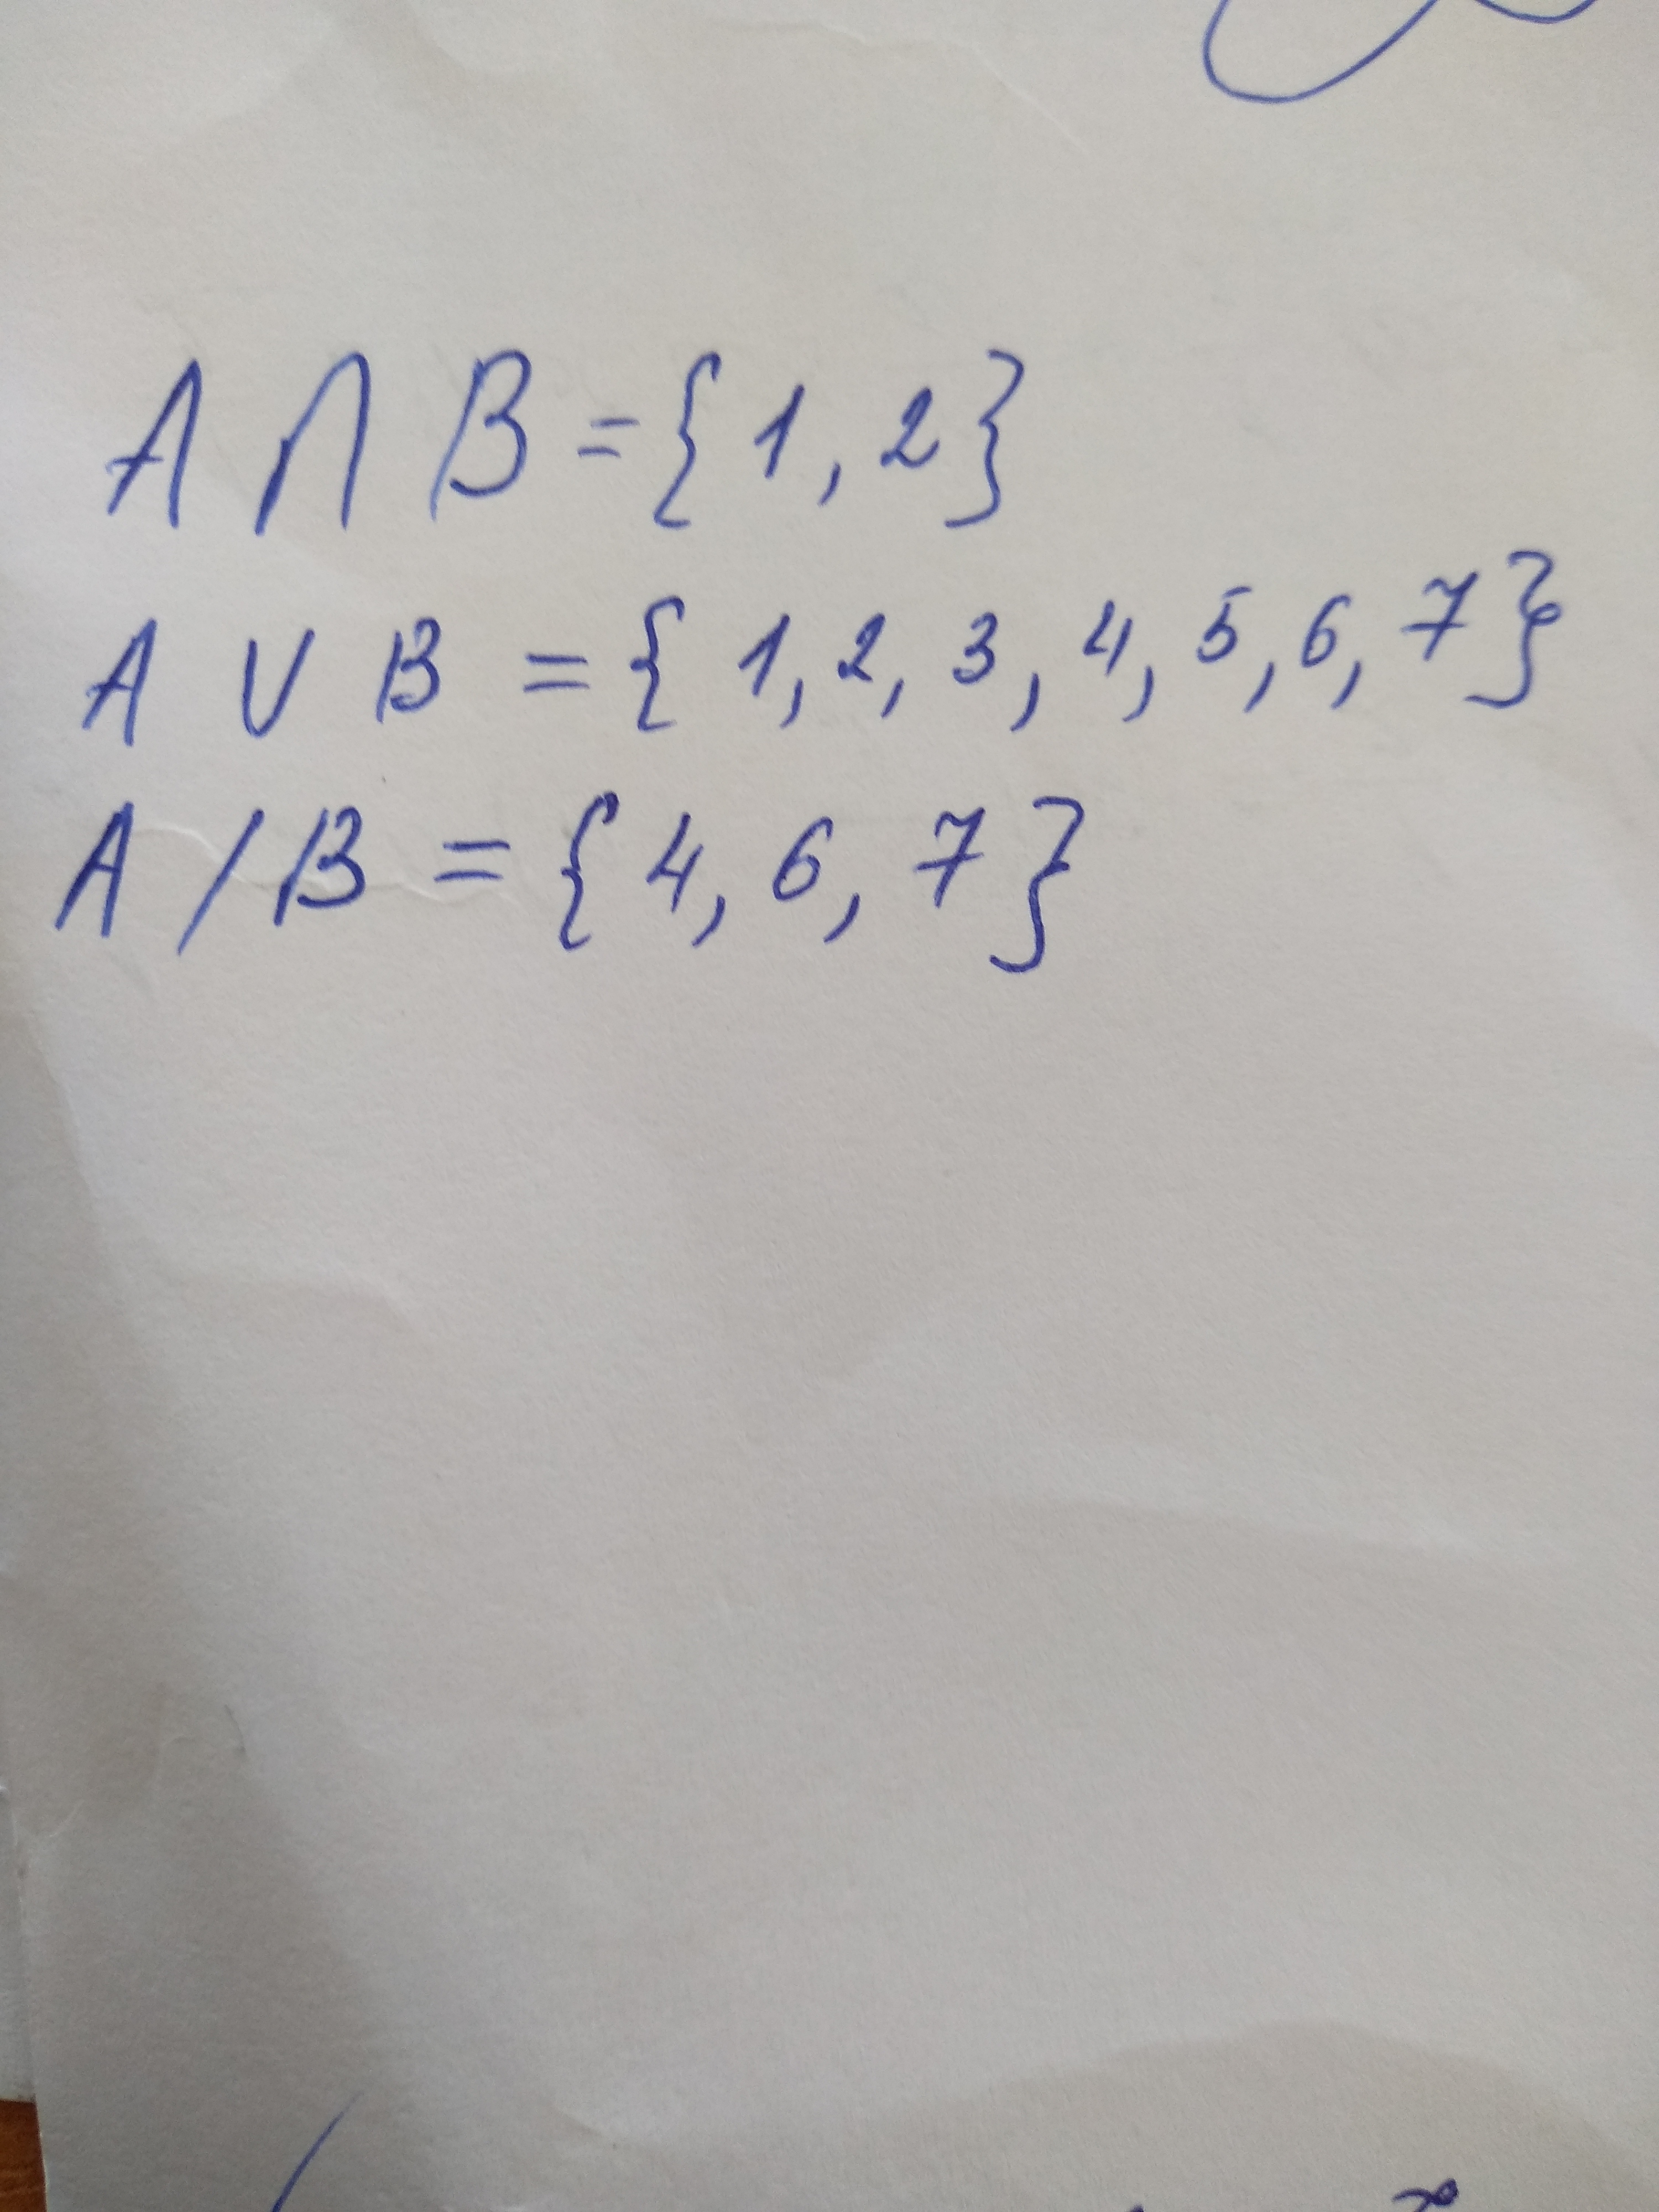 A ∩ B = {1, 2}
A ∪ B = {1, 2, 3, 4, 5, 6, 7}
A / B = {4, 6, 7}